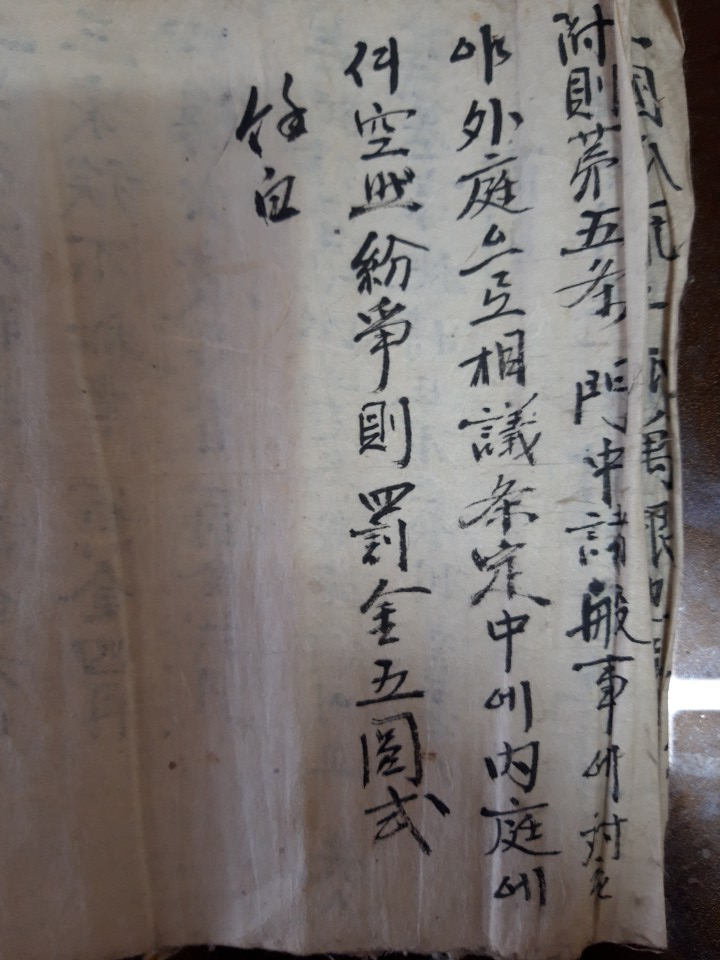 附則苐五条 門中諸般事에 対하
야 外庭으로 相議条定中에 內庭에
空然 紛爭則 罰金五圓式
餘白